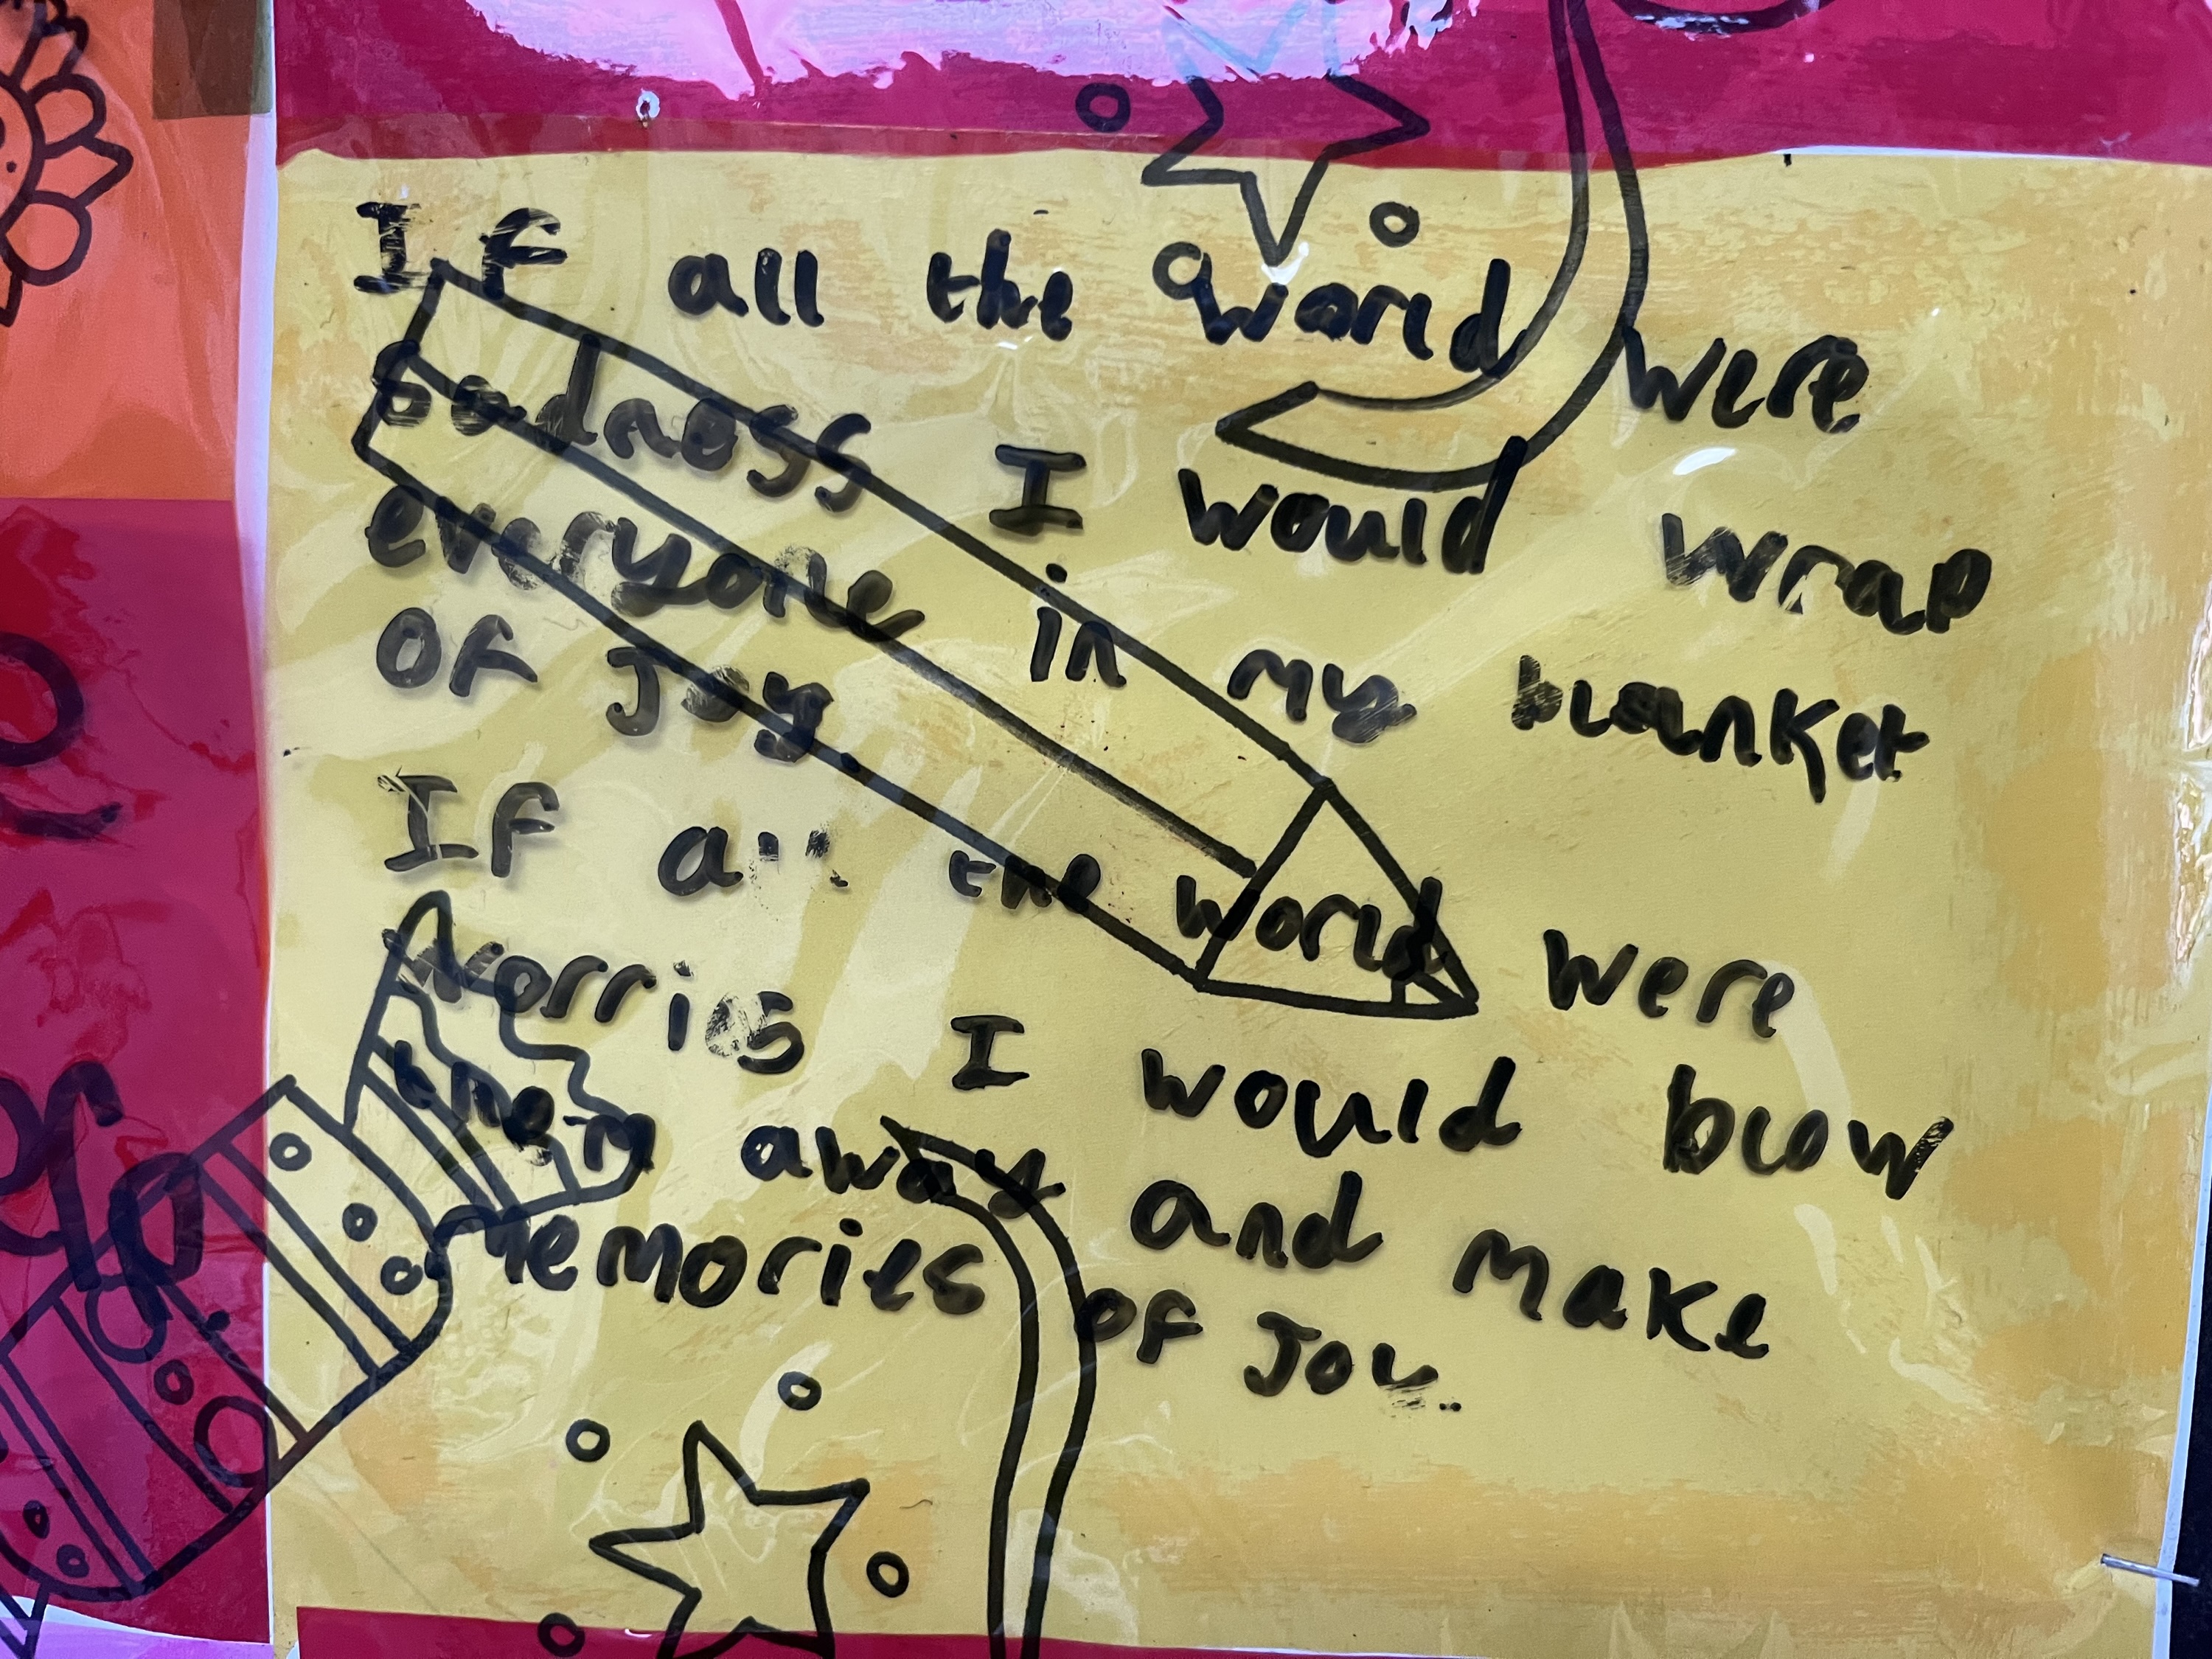 If all the world were
sadness I would wrap
everyone in my blanket
of Joy.
If all the world were
worries I would blow
them away and make
memories of Joy.